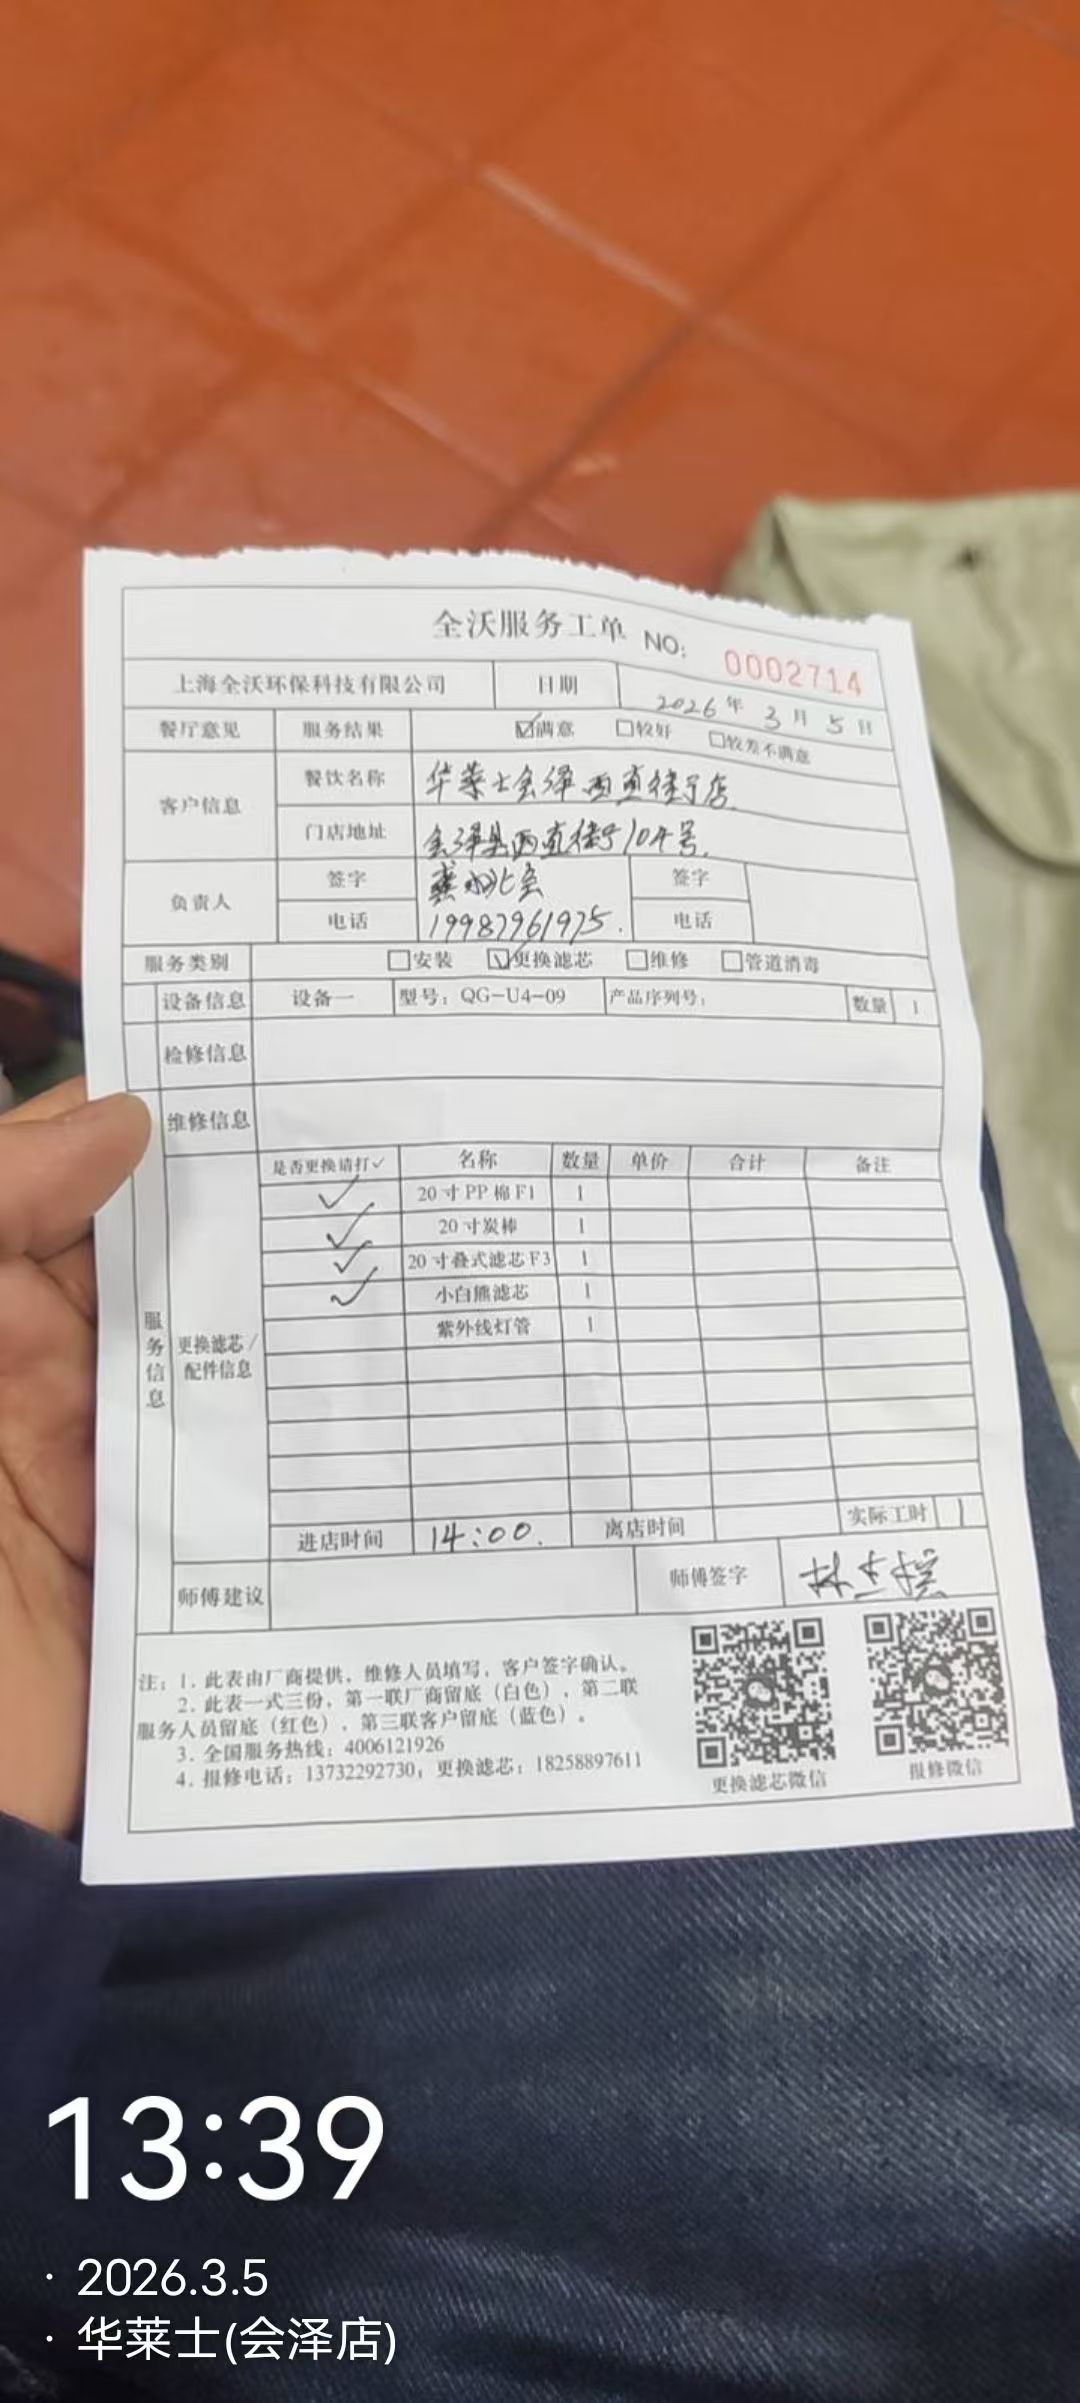 全沃服务工单 NO: 0002714
上海全沃环保科技有限公司 日期 2026年3月5日
餐厅意见 服务结果 ☑满意 □较好 □较差不满意
客户信息 餐饮名称 华莱士会泽西直街店
门店地址 会泽县西直街104号.
负责人 签字 签字
电话 19987961975. 电话
服务类别 □安装 ☑更换滤芯 □维修 □管道消毒
设备信息 设备一 型号: QG-U4-09 产品序列号: 数量 1
检修信息
维修信息
服务信息
更换滤芯/配件信息
是否更换请打✓ 名称 数量 单价 合计 备注
✓ 20寸PP棉F1 1
✓ 20寸炭棒 1
✓ 20寸叠式滤芯F3 1
✓ 小白熊滤芯 1
紫外线灯管 1
进店时间 14:00. 离店时间 实际工时 1
师傅建议 师傅签字
注: 1. 此表由厂商提供, 维修人员填写, 客户签字确认。
2. 此表一式三份, 第一联厂商留底(白色), 第二联
服务人员留底(红色), 第三联客户留底(蓝色)。
3. 全国服务热线: 4006121926
4. 报修电话: 13732292730; 更换滤芯: 18258897611
更换滤芯微信 报修微信
13:39
· 2026.3.5
· 华莱士(会泽店)